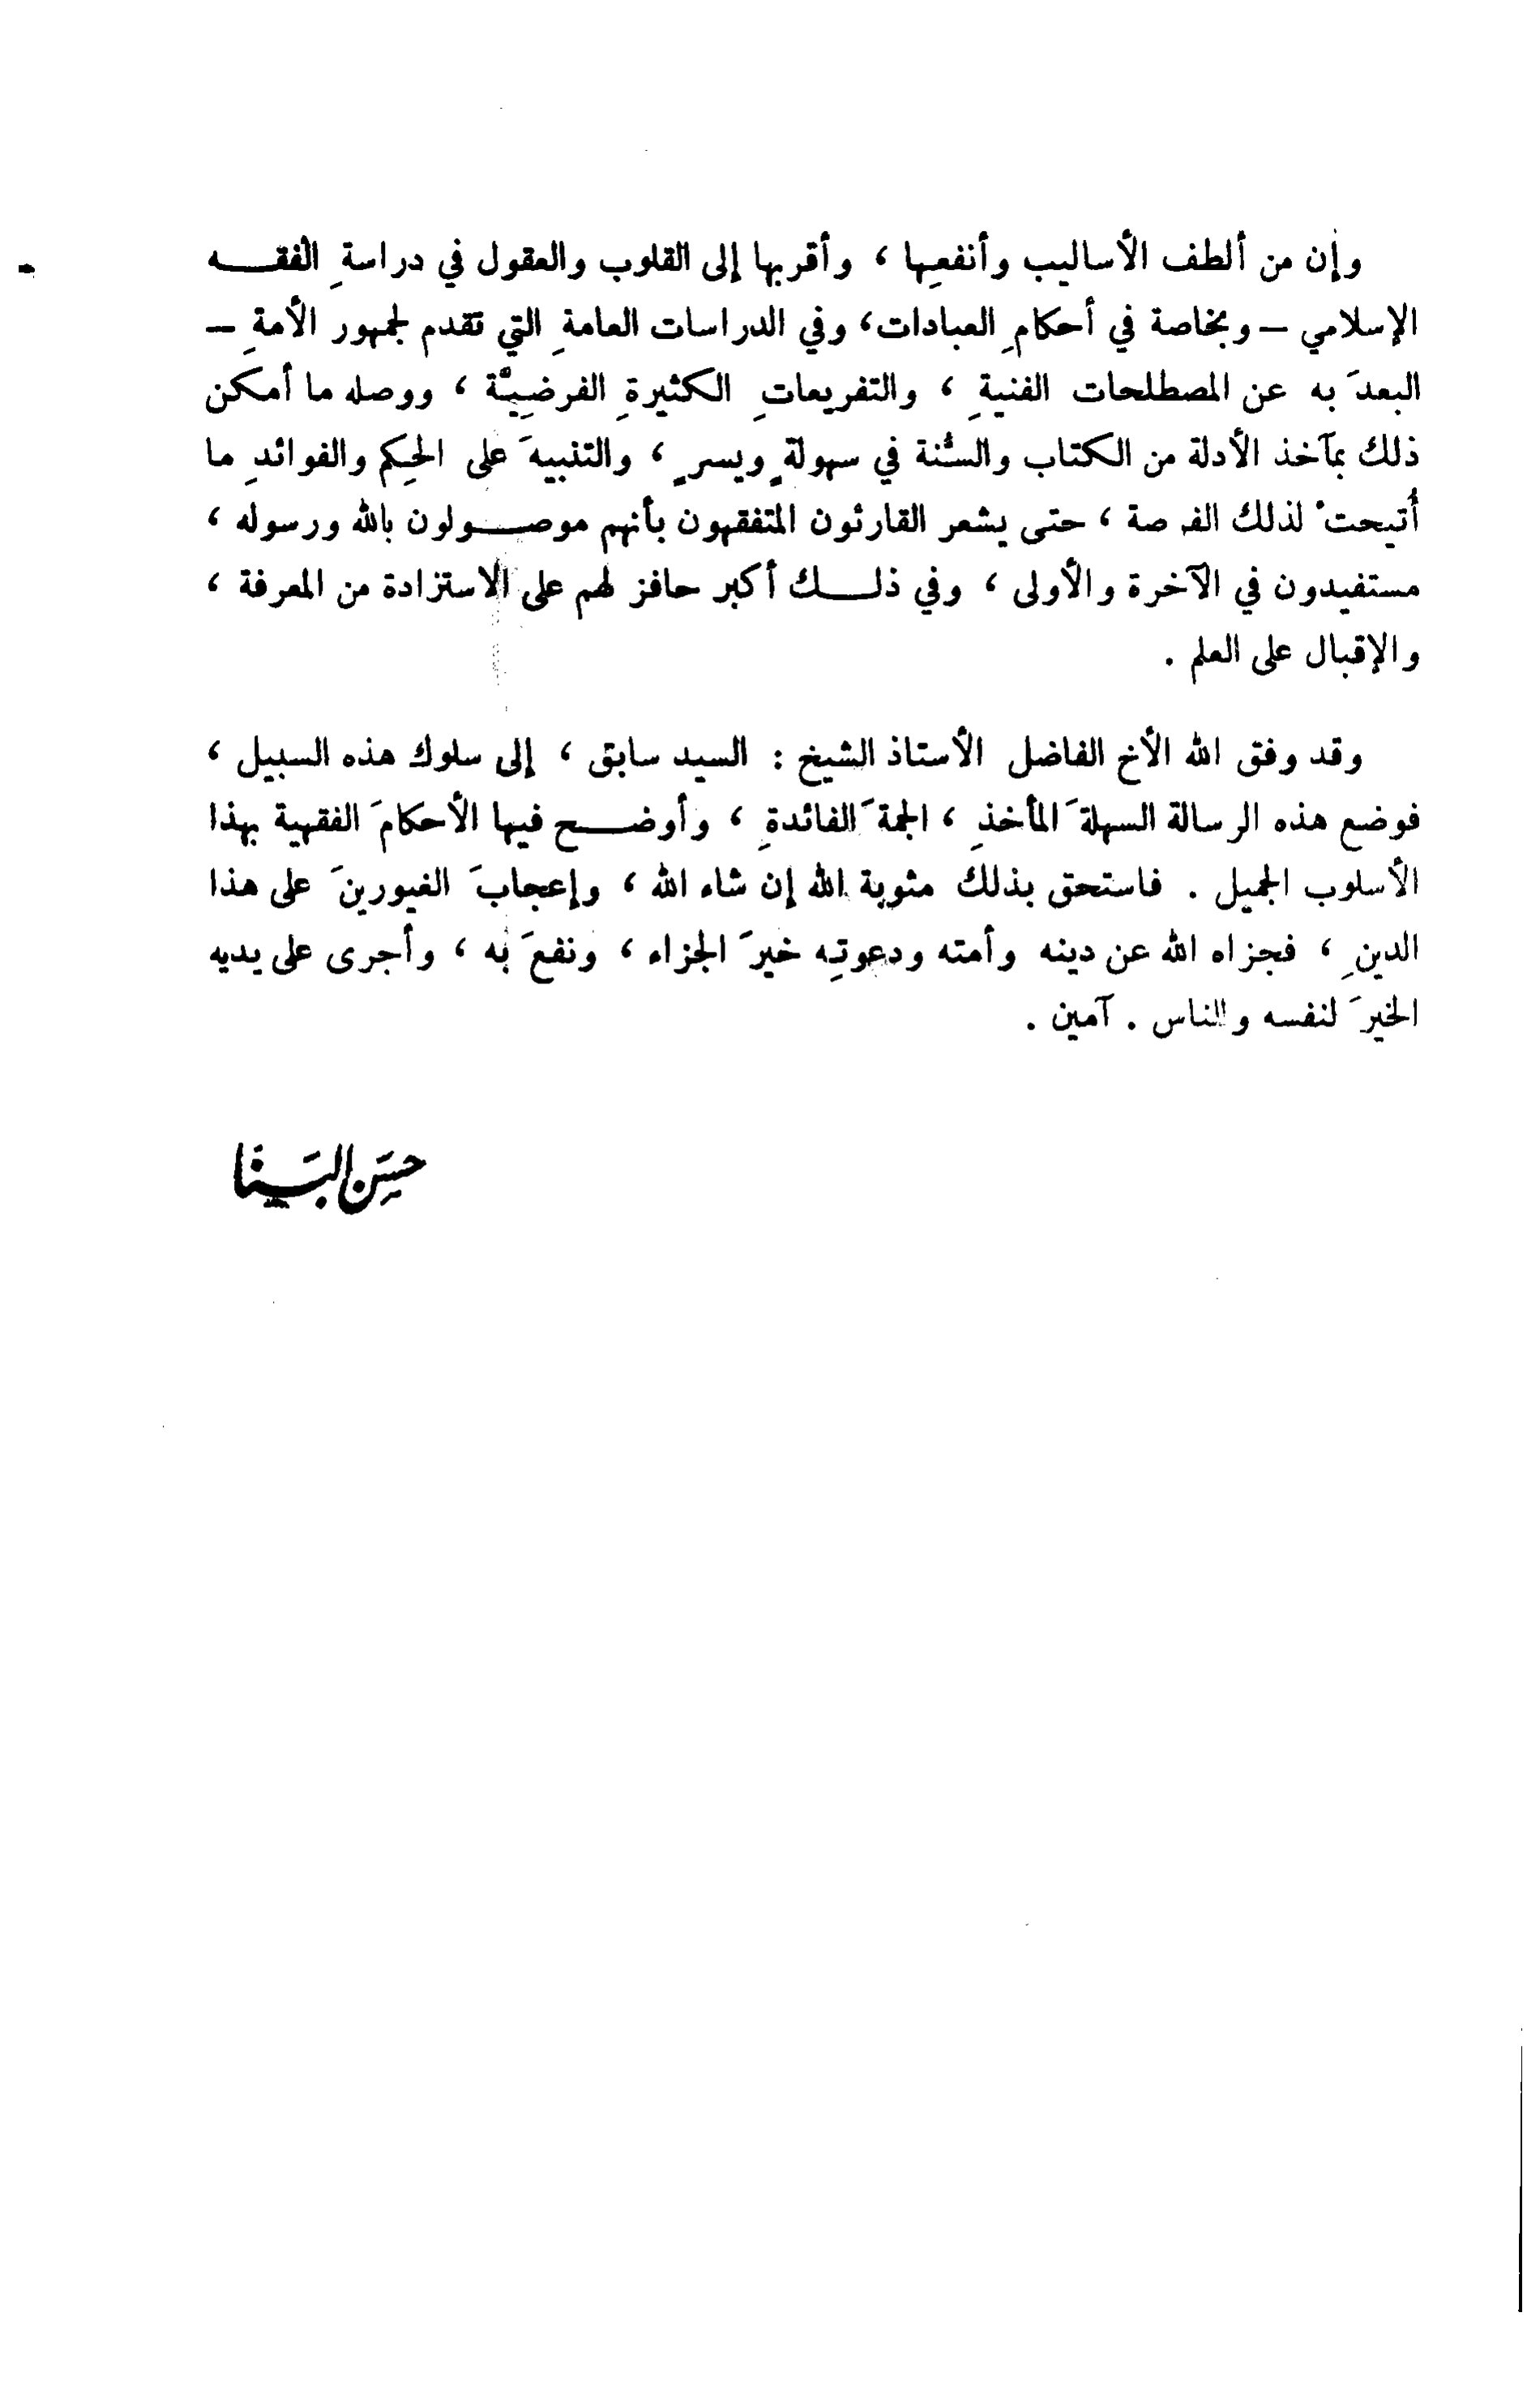 وإن من ألطف الأساليب وأنفعِها ، وأقربها إلى القلوب والعقول في دراسةِ الفقه
الإسلامي – وبخاصة في أحكامِ العبادات، وفي الدراسات العامةِ التي تقدم لجمهور الأمةِ –
البعدَ به عن المصطلحات الفنيةِ ، والتفريعاتِ الكثيرةِ الفرضِيَّة ، ووصله ما أمكن
ذلك بمآخذ الأدلة من الكتاب والسُّنة في سهولةٍ ويسرٍ ، والتنبيهَ على الحِكم والفوائدِ ما
أُتيحتْ لذلك الفرصة ، حتى يشعر القارئون المتفقهون بأنهم موصولون بالله ورسوله ،
مستفيدون في الآخرة والأولى ، وفي ذلك أكبر حافز لهم على الاستزادة من المعرفة ،
والإقبال على العلم .
وقد وفق الله الأخ الفاضل الأستاذ الشيخ : السيد سابق ، إلى سلوك هذه السبيل ،
فوضع هذه الرسالة السهلةَ المأخذِ ، الجمةَ الفائدةِ ، وأوضح فيها الأحكامَ الفقهية بهذا
الأسلوب الجميل . فاستحق بذلك مثوبة الله إن شاء الله ، وإعجابَ الغيورينَ على هذا
الدينِ ، فجزاه الله عن دينه وأمته ودعوتِه خيرَ الجزاء ، ونفعَ به ، وأجرى على يديه
الخيرَ لنفسه والناس . آمين .
حسَن البَنا